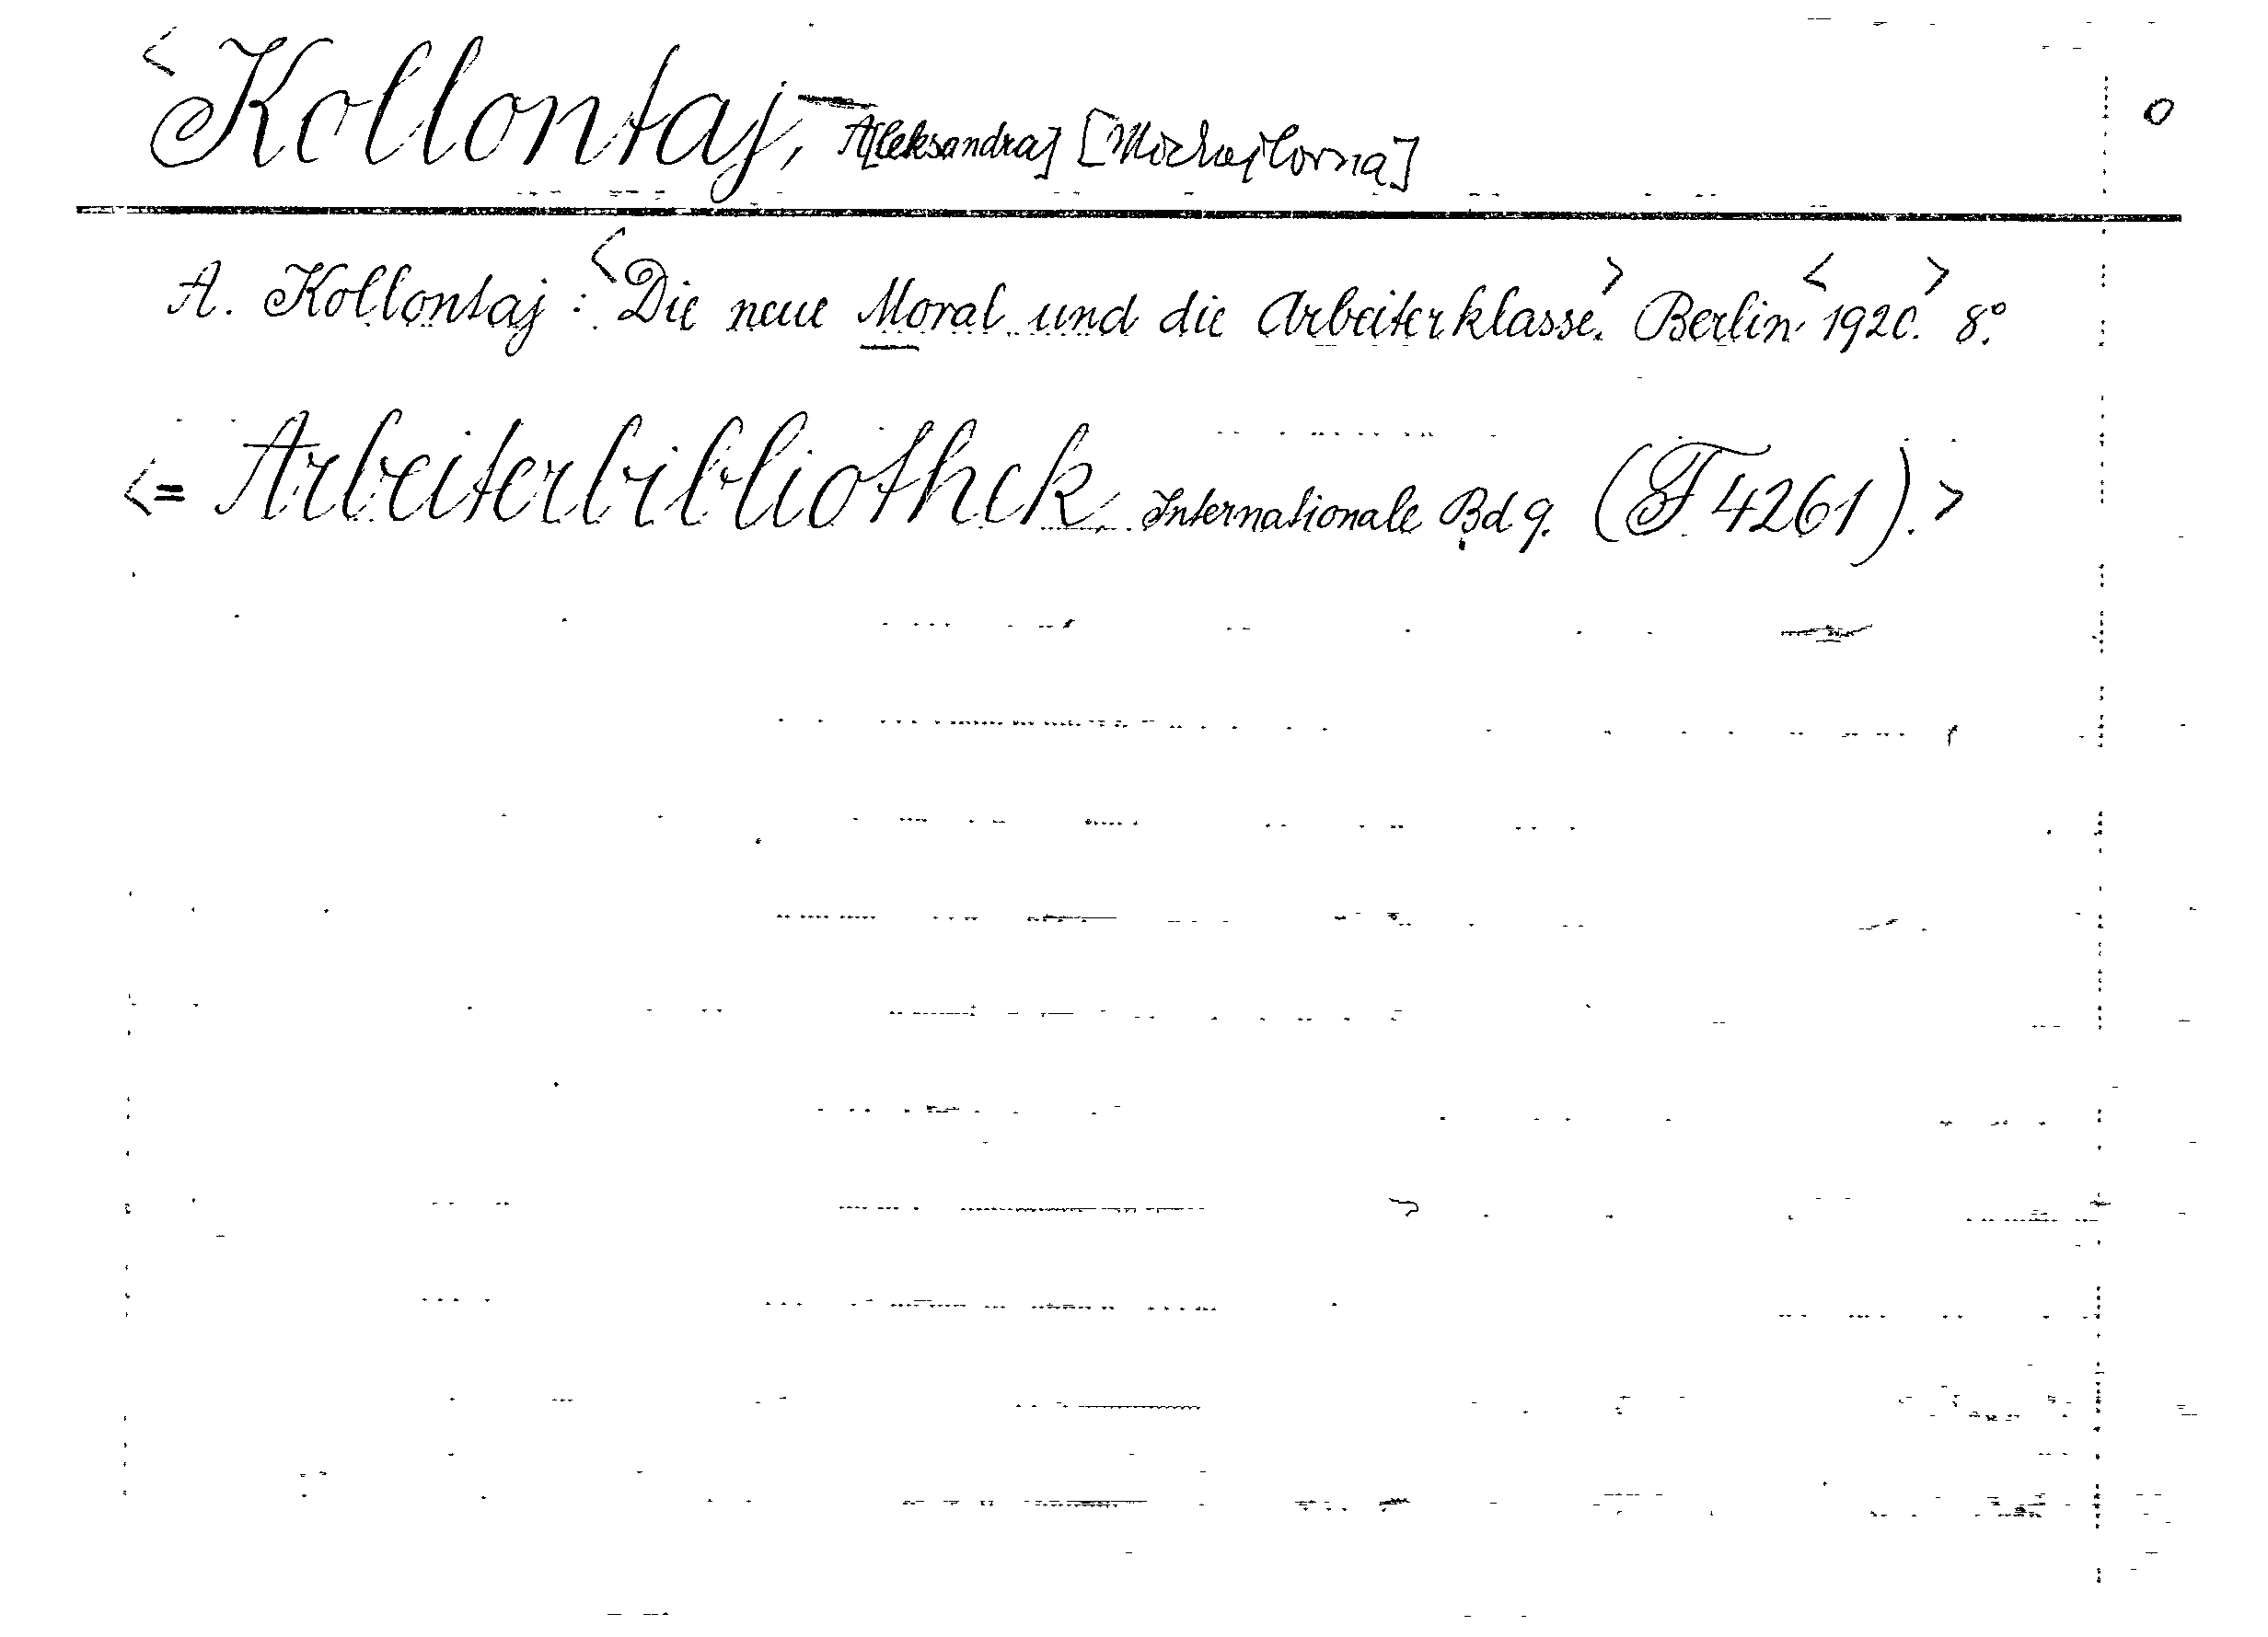 <Kollontaj, A[leksandra] [Michajlovna] o
A. Kollontaj: <Die neue Moral und die Arbeiterklasse.> Berlin <1920.> 8°.
<= Arbeiterbibliothek, Internationale Bd 9. (F 4261).>